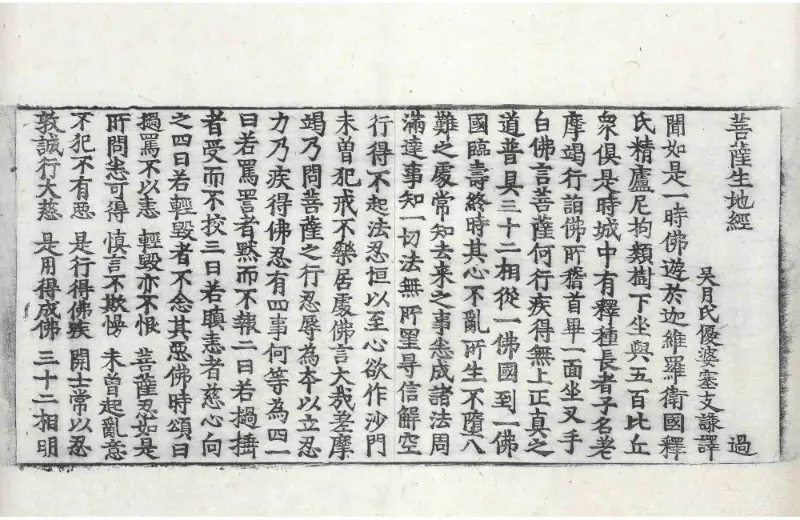 菩薩生地經 過
吳月氏優婆塞支謙譯
聞如是一時佛遊於迦維羅衛國釋
氏精廬尼拘類樹下坐與五百比丘
衆俱是時城中有釋種長者子名差
摩竭行詣佛所稽首畢一面坐叉手
白佛言菩薩何行疾得無上正真之
道普具三十二相從一佛國到一佛
國臨壽終時其心不亂所生不墮八
難之處常知去來之事悉成諸法周
滿達事知一切法無所罣导信解空
行得不起法忍恒以至心欲作沙門
未曾犯戒不樂居處佛言大我差摩
竭乃問菩薩之行忍辱為本以立忍
力乃疾得佛忍有四事何等為四一
曰若罵詈者默而不報二曰若撾捶
者受而不挍三曰若瞋恚者慈心向
之四曰若輕毀者不念其惡佛時頌曰
撾罵不以恚 輕毀亦不恨 菩薩忍如是
所問悉可得 慎言不欺㥬 未曾起亂意
不犯不有惡 是行得佛疾 闓士常以忍
敦誠行大慈 是用得成佛 三十二相明